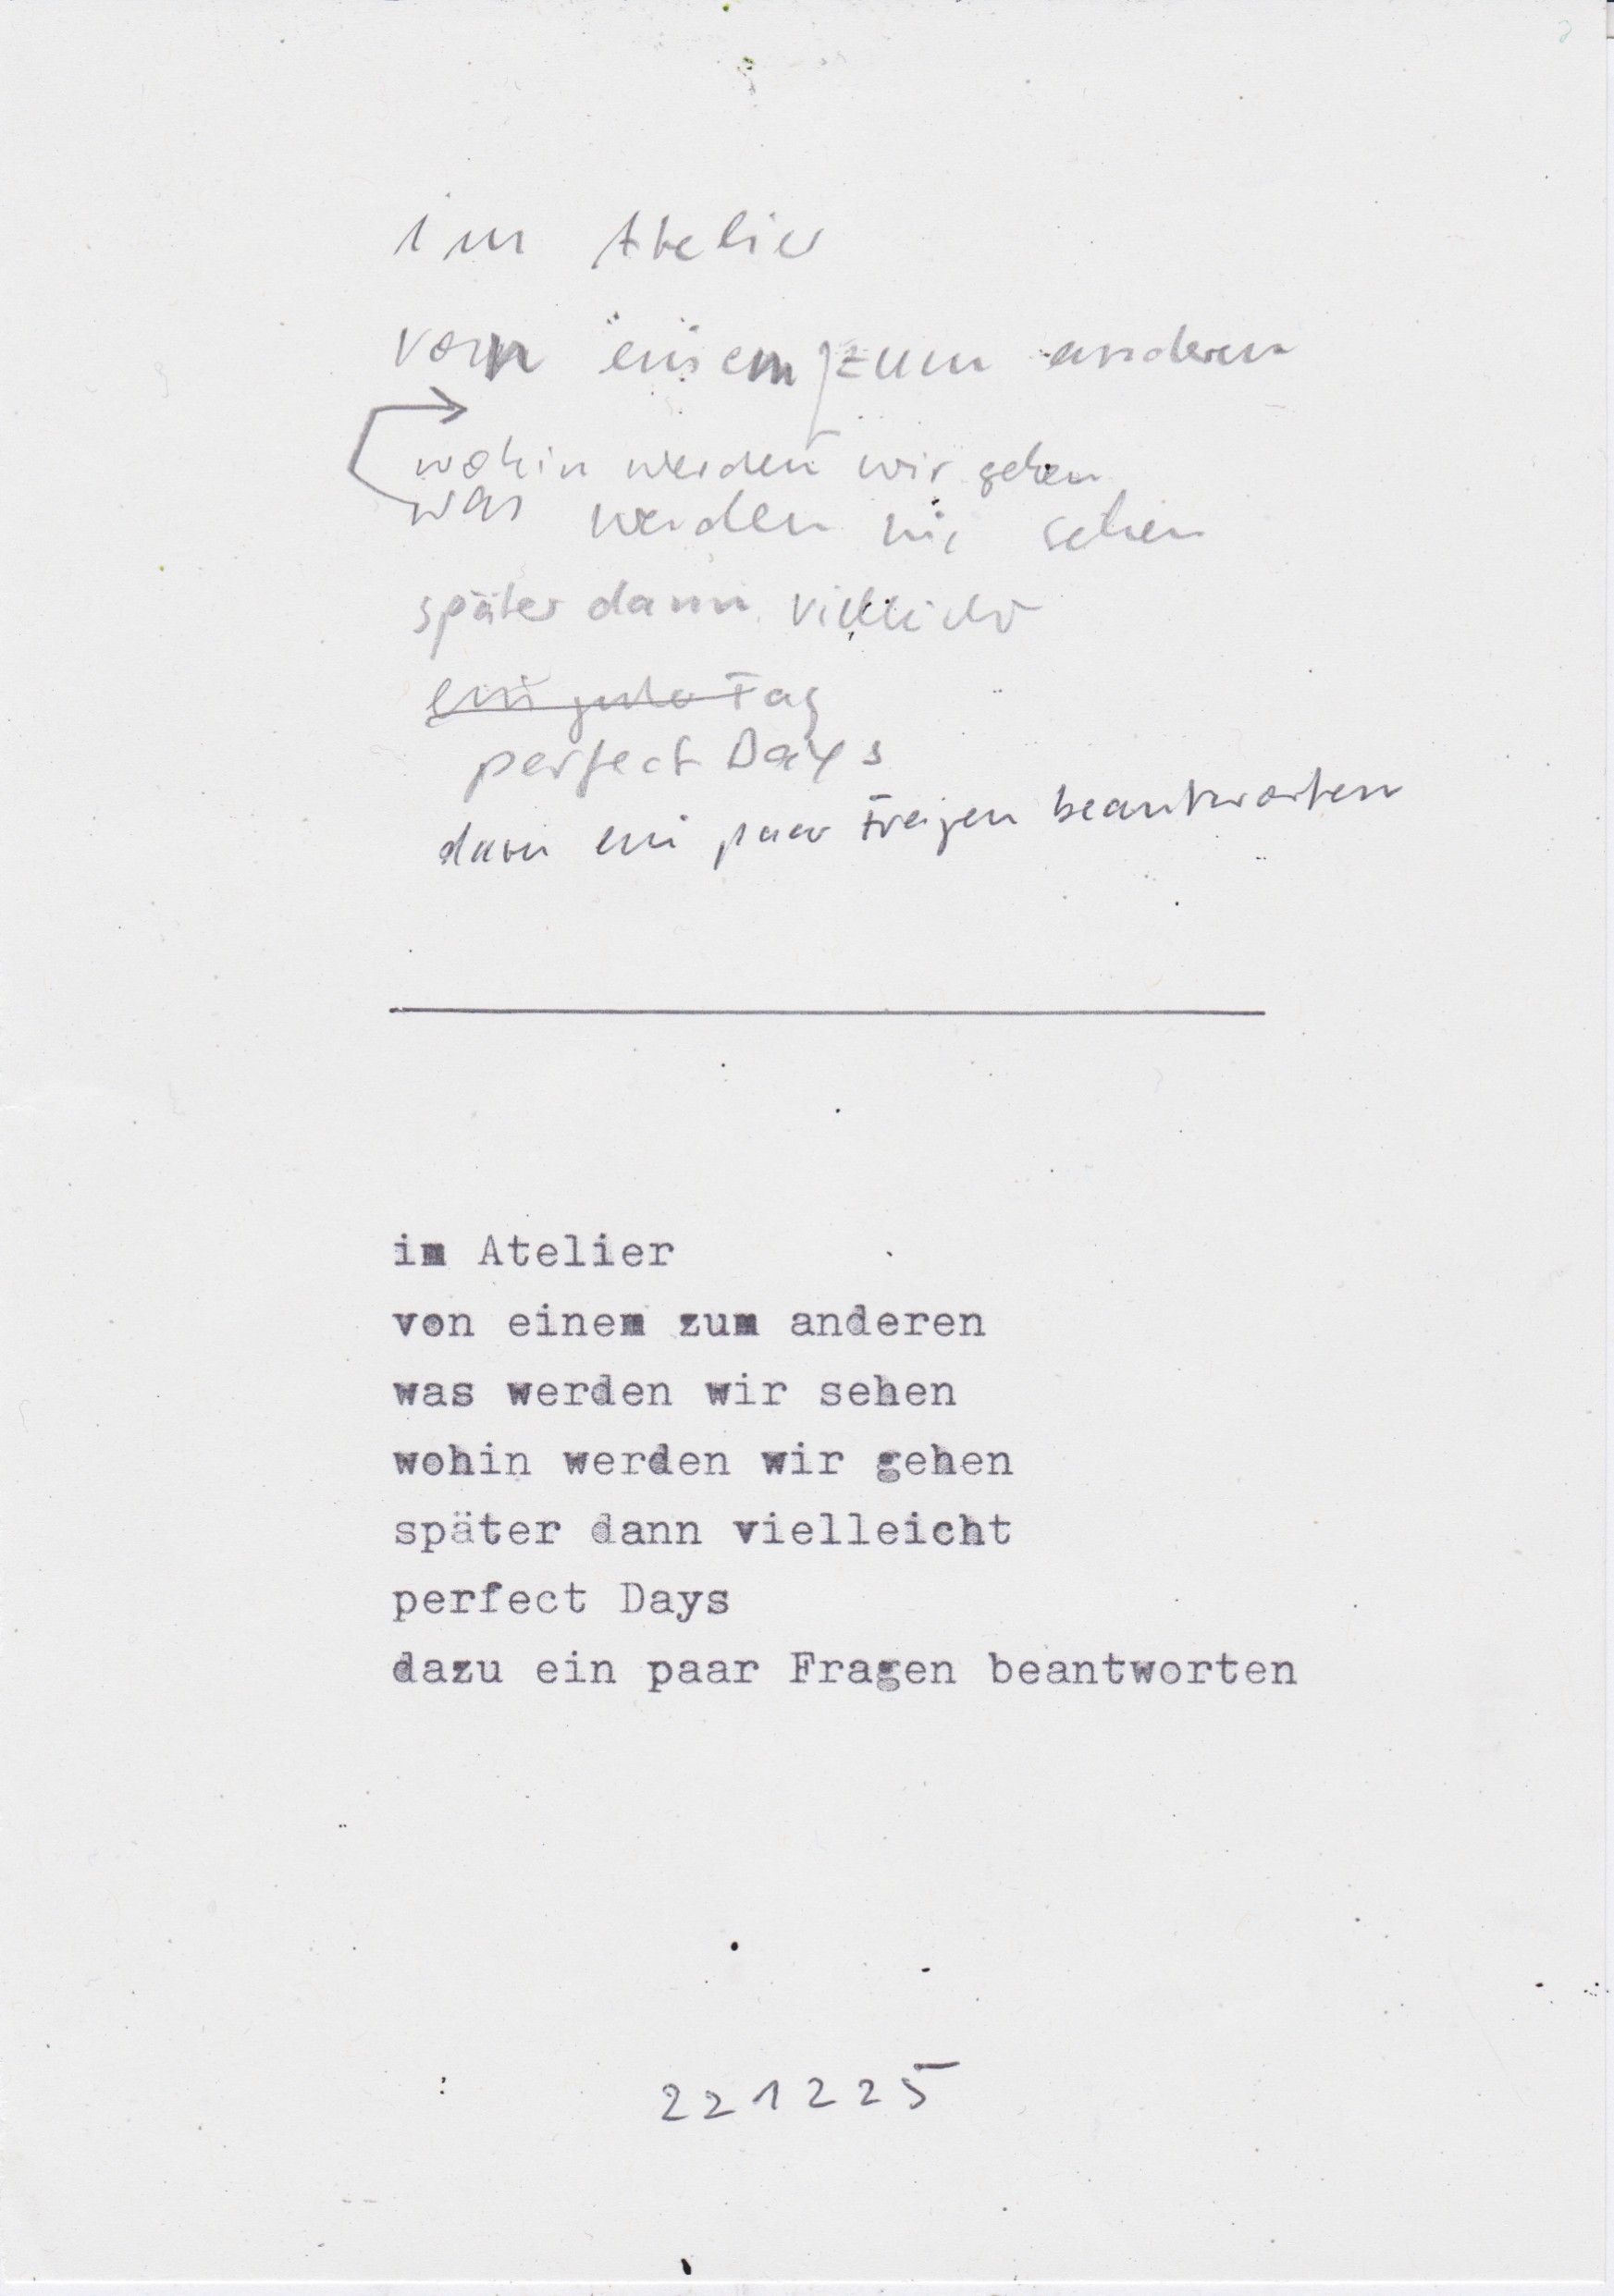 im Atelier
von einem zum anderen
wohin werden wir gehen
was werden wir sehen
später dann vielleicht
ein guter Tag
perfect Days
ein paar Fragen beantworten
im Atelier
von einem zum anderen
was werden wir sehen
wohin werden wir gehen
später dann vielleicht
perfect Days
dazu ein paar Fragen beantworten
221225